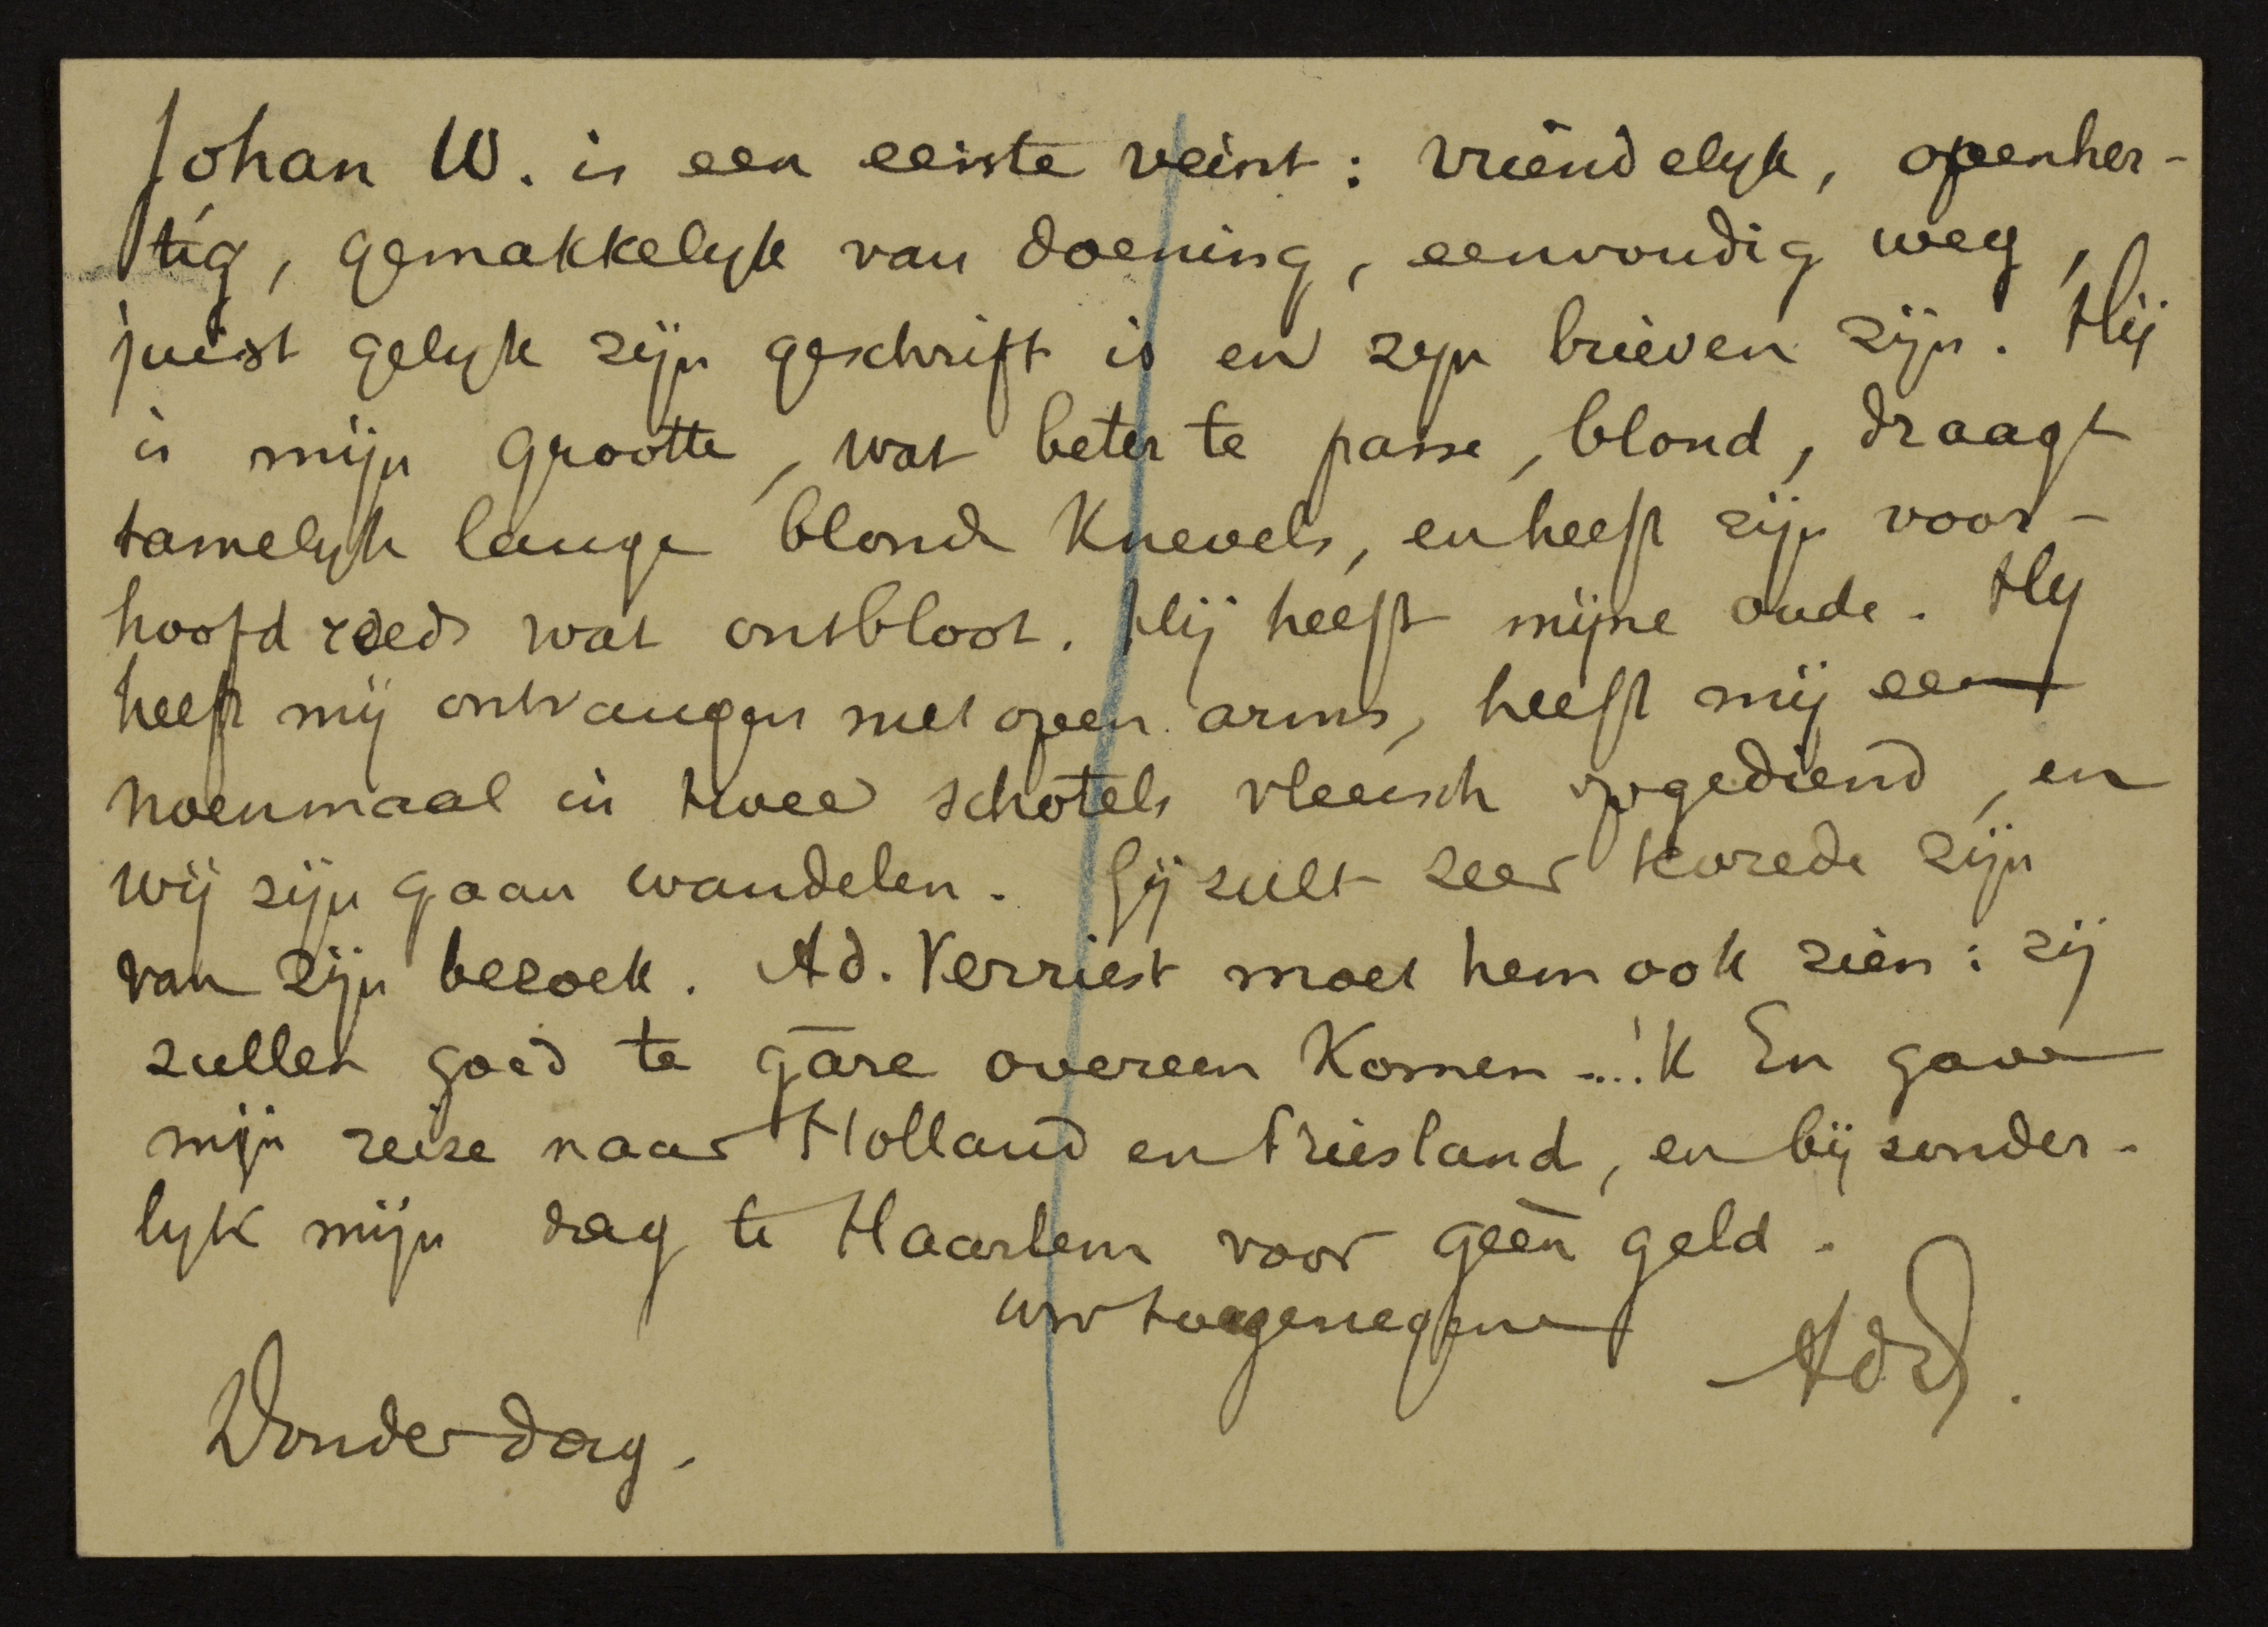 Johan W. is een eerste veint: vriendelyk, openher-
tig, gemakkelyk van doening, eenvoudig weg,
juist gelyk zijn geschrift is en zyn brieven zijn. Hij
is mijn grootte, wat beter te passe, blond, draagt
tamelyk lange blonde knevels, en heeft zijn voor-
hoofd reeds wat ontbloot. Hij heeft mijne oude. Hy
heeft mij ontvangen met open arms, heeft mij een
noenmaal in twee schotels vleesch opgediend, en
wij zijn gaan wandelen. Gij zult zeer tevrede zijn
van zijn bezoek. Ad. Verriest moet hem ook zien: zij
zullen goed te gare overeen komen ... 'k En gave
mijn reize naar Holland en Friesland, en bijzonder-
lyk mijn dag te Haarlem voor geen geld.
uw toegenegene
AdW.
Donderdag.